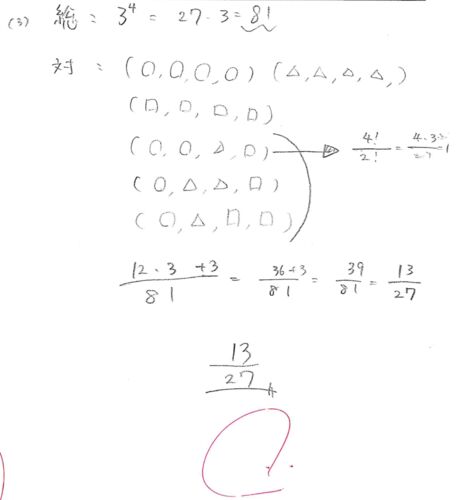 (3) 総 : 3^4 = 27・3 = 81
対 : (○, ○, ○, ○) (△, △, △, △,)
(□, □, □, □)
(○, ○, △, □) → 4!/2! = 4・3・
(○, △, △, □)
(○, △, □, □)
12・3 +3/81 = 36+3/81 = 39/81 = 13/27
13/27